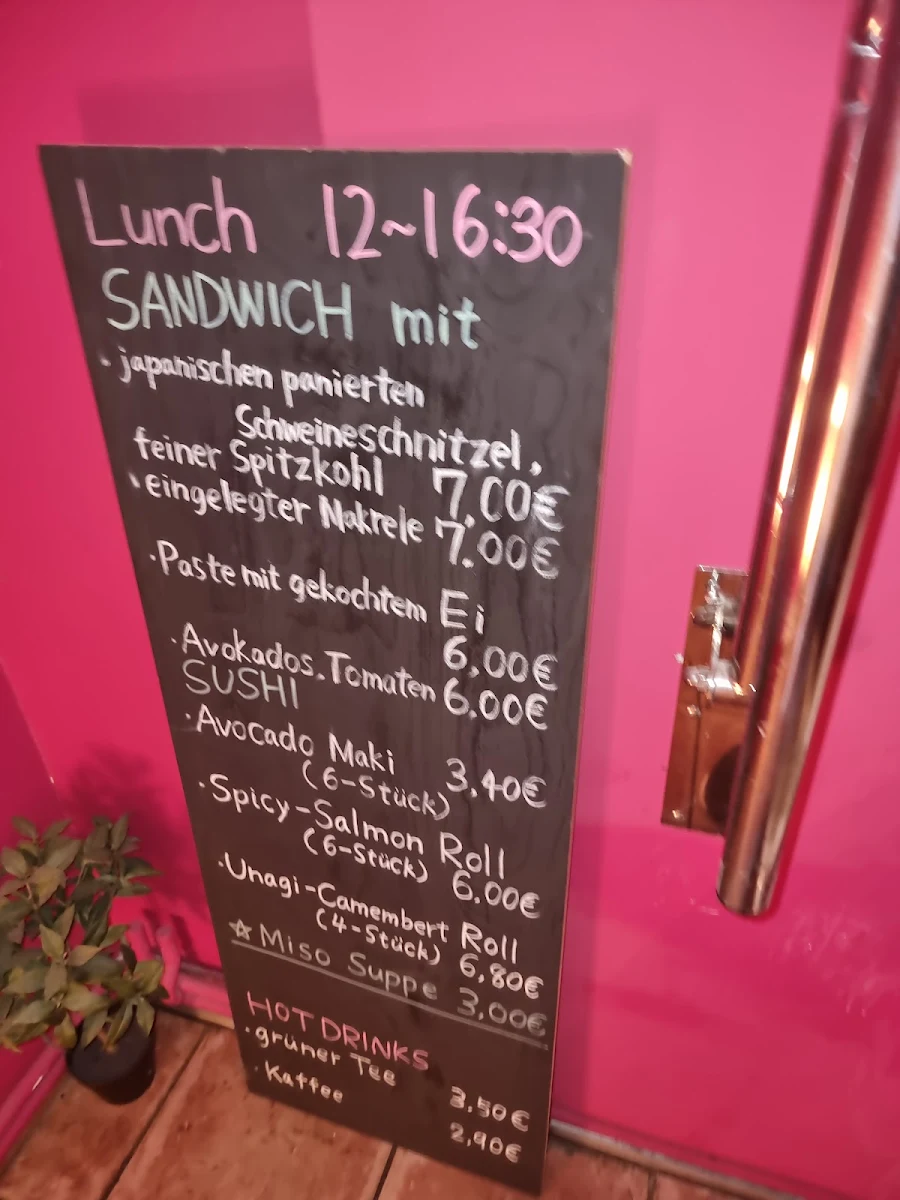 Lunch 12~16:30
SANDWICH mit
· japanischen panierten
Schweineschnitzel,
feiner Spitzkohl 7,00€
· eingelegter Makrele 7.00€
· Paste mit gekochtem Ei
6,00€
· Avokados. Tomaten 6,00€
SUSHI
· Avocado Maki
(6-Stück) 3,40€
· Spicy-Salmon Roll
(6-Stück) 6.00€
· Unagi-Camembert Roll
(4-Stück) 6,80€
☆ Miso Suppe 3,00€
HOT DRINKS
· grüner Tee 3,50€
· Kaffee 2,90€